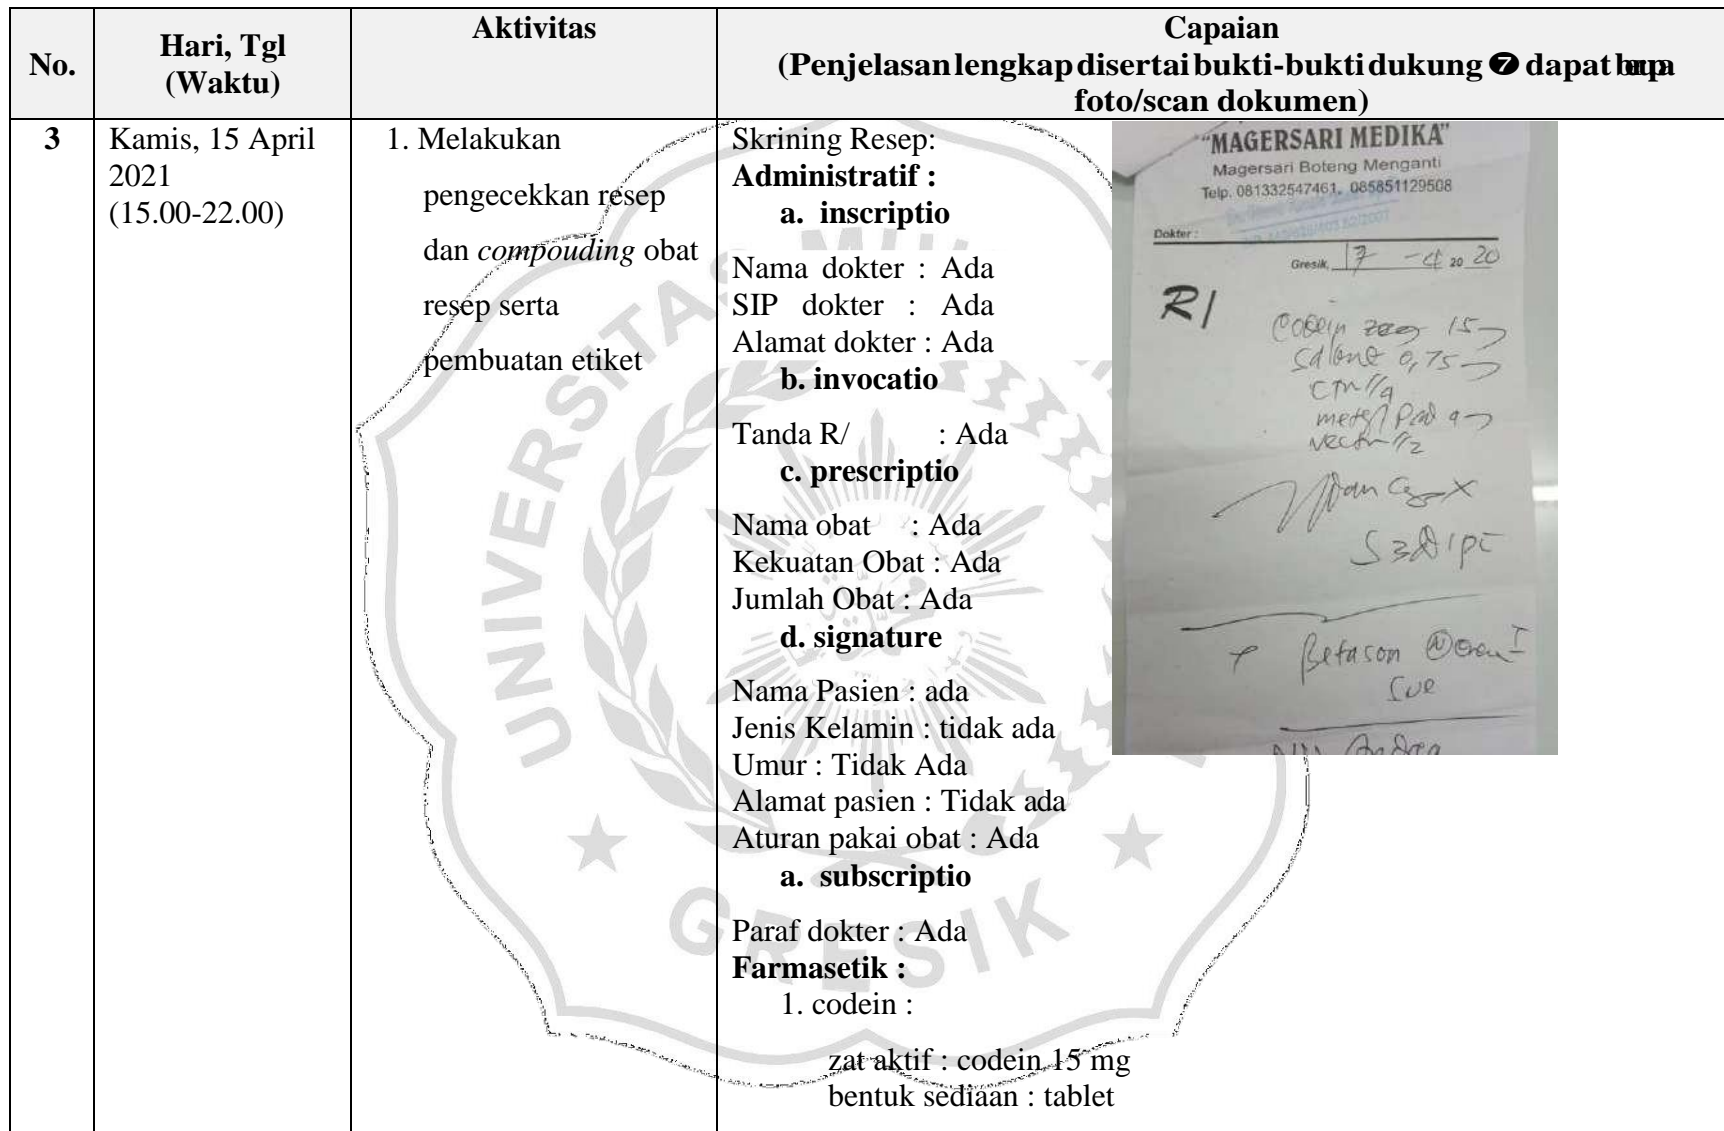 No.
Hari, Tgl
(Waktu)
Aktivitas
Capaian
(Penjelasan lengkap disertai bukti-bukti dukung ❼ dapat
foto/scan dokumen)
3
Kamis, 15 April
2021
(15.00-22.00)
1. Melakukan
pengecekkan resep
dan compouding obat
resep serta
pembuatan etiket
Skrining Resep:
Administratif :
a. inscriptio
Nama dokter : Ada
SIP dokter : Ada
Alamat dokter : Ada
b. invocatio
Tanda R/ : Ada
c. prescriptio
Nama obat : Ada
Kekuatan Obat : Ada
Jumlah Obat : Ada
d. signature
Nama Pasien : ada
Jenis Kelamin : tidak ada
Umur : Tidak Ada
Alamat pasien : Tidak ada
Aturan pakai obat : Ada
a. subscriptio
Paraf dokter : Ada
Farmasetik :
1. codein :
zat aktif : codein 15 mg
bentuk sediaan : tablet
"MAGERSARI MEDIKA"
Magersari Boteng Menganti
Telp. 081332547461, 085851129508
Dokter :
Gresik, 17 - 4 20 20
R/
Codein 15
0,75
CTM
Betason
Sue
UNIVERSITAS MU
GRESIK